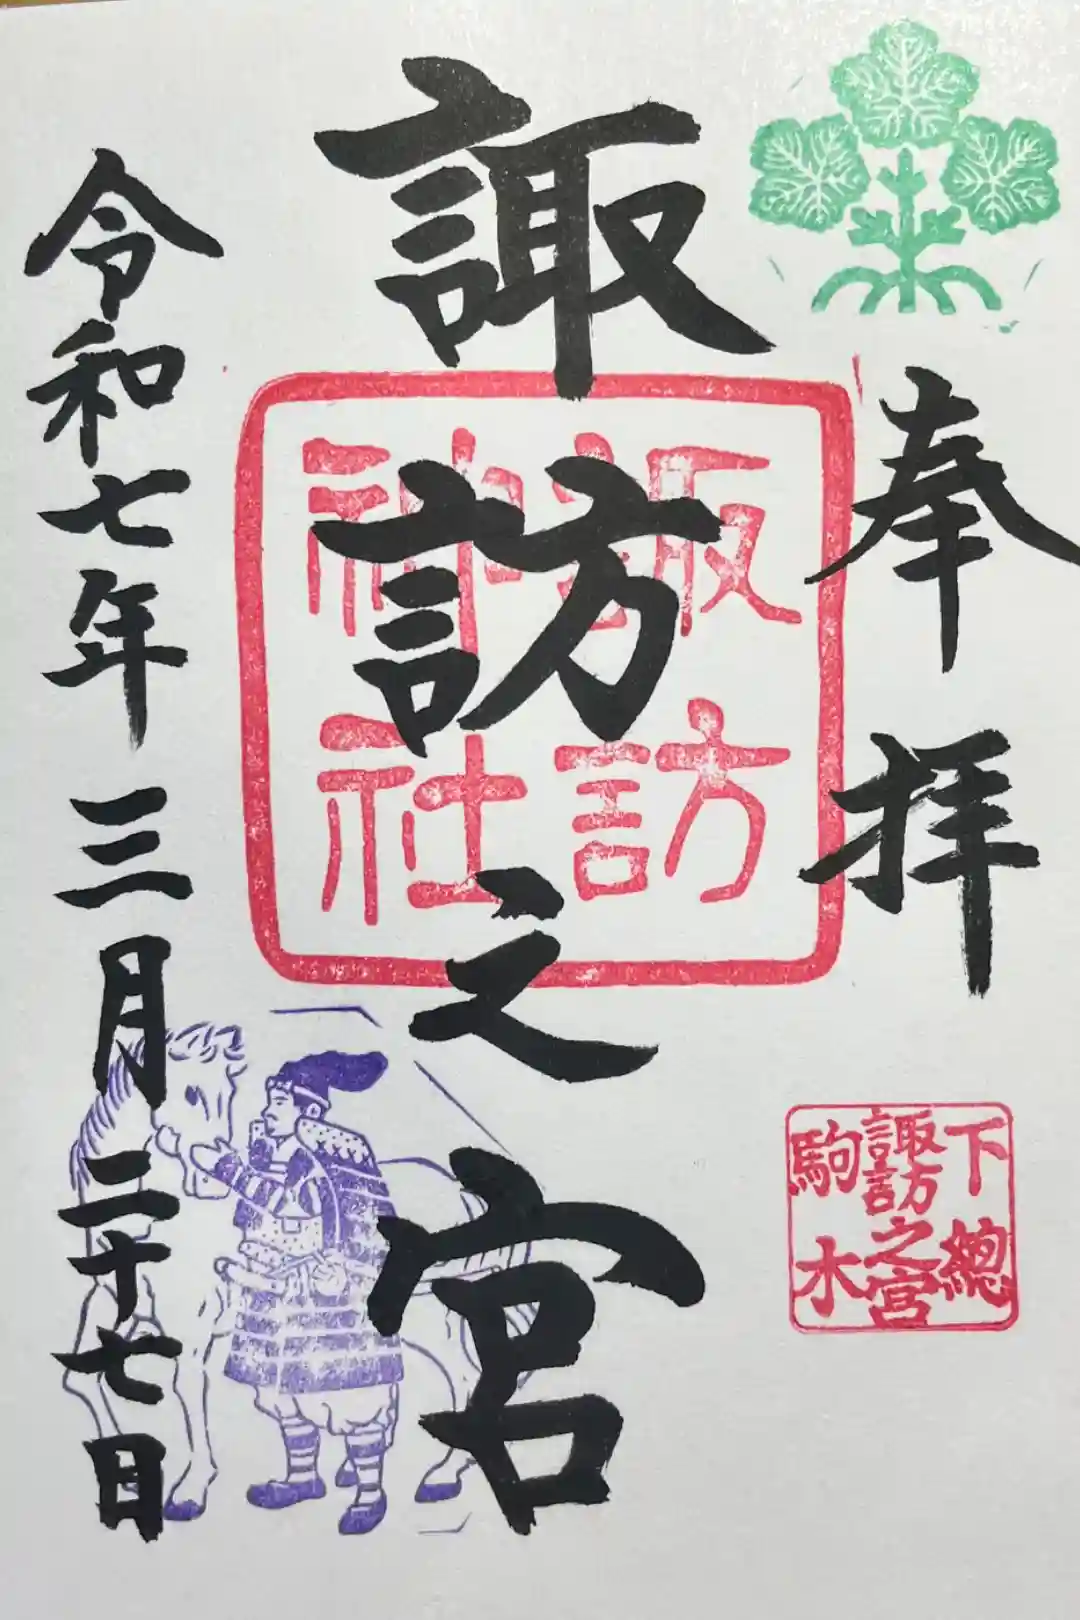 奉拝
諏訪之宮
諏訪神社
下總
諏訪之宮
駒木
令和七年三月二十七日